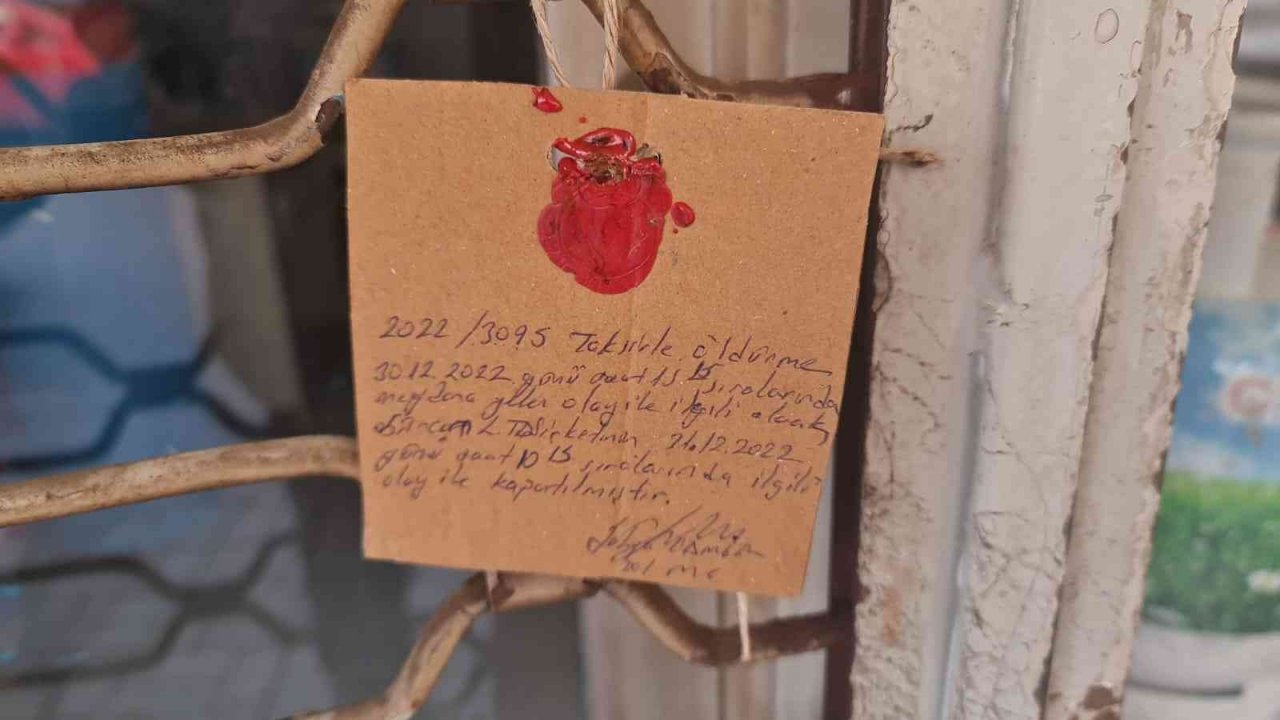 2022/3095 Taksirle öldürme
30.12.2022 günü saat 15 15 sıralarında
meydana gelen olay ile ilgili olarak
31.12.2022
günü saat 10 15 sıralarında ilgili
olay ile kapatılmıştır.